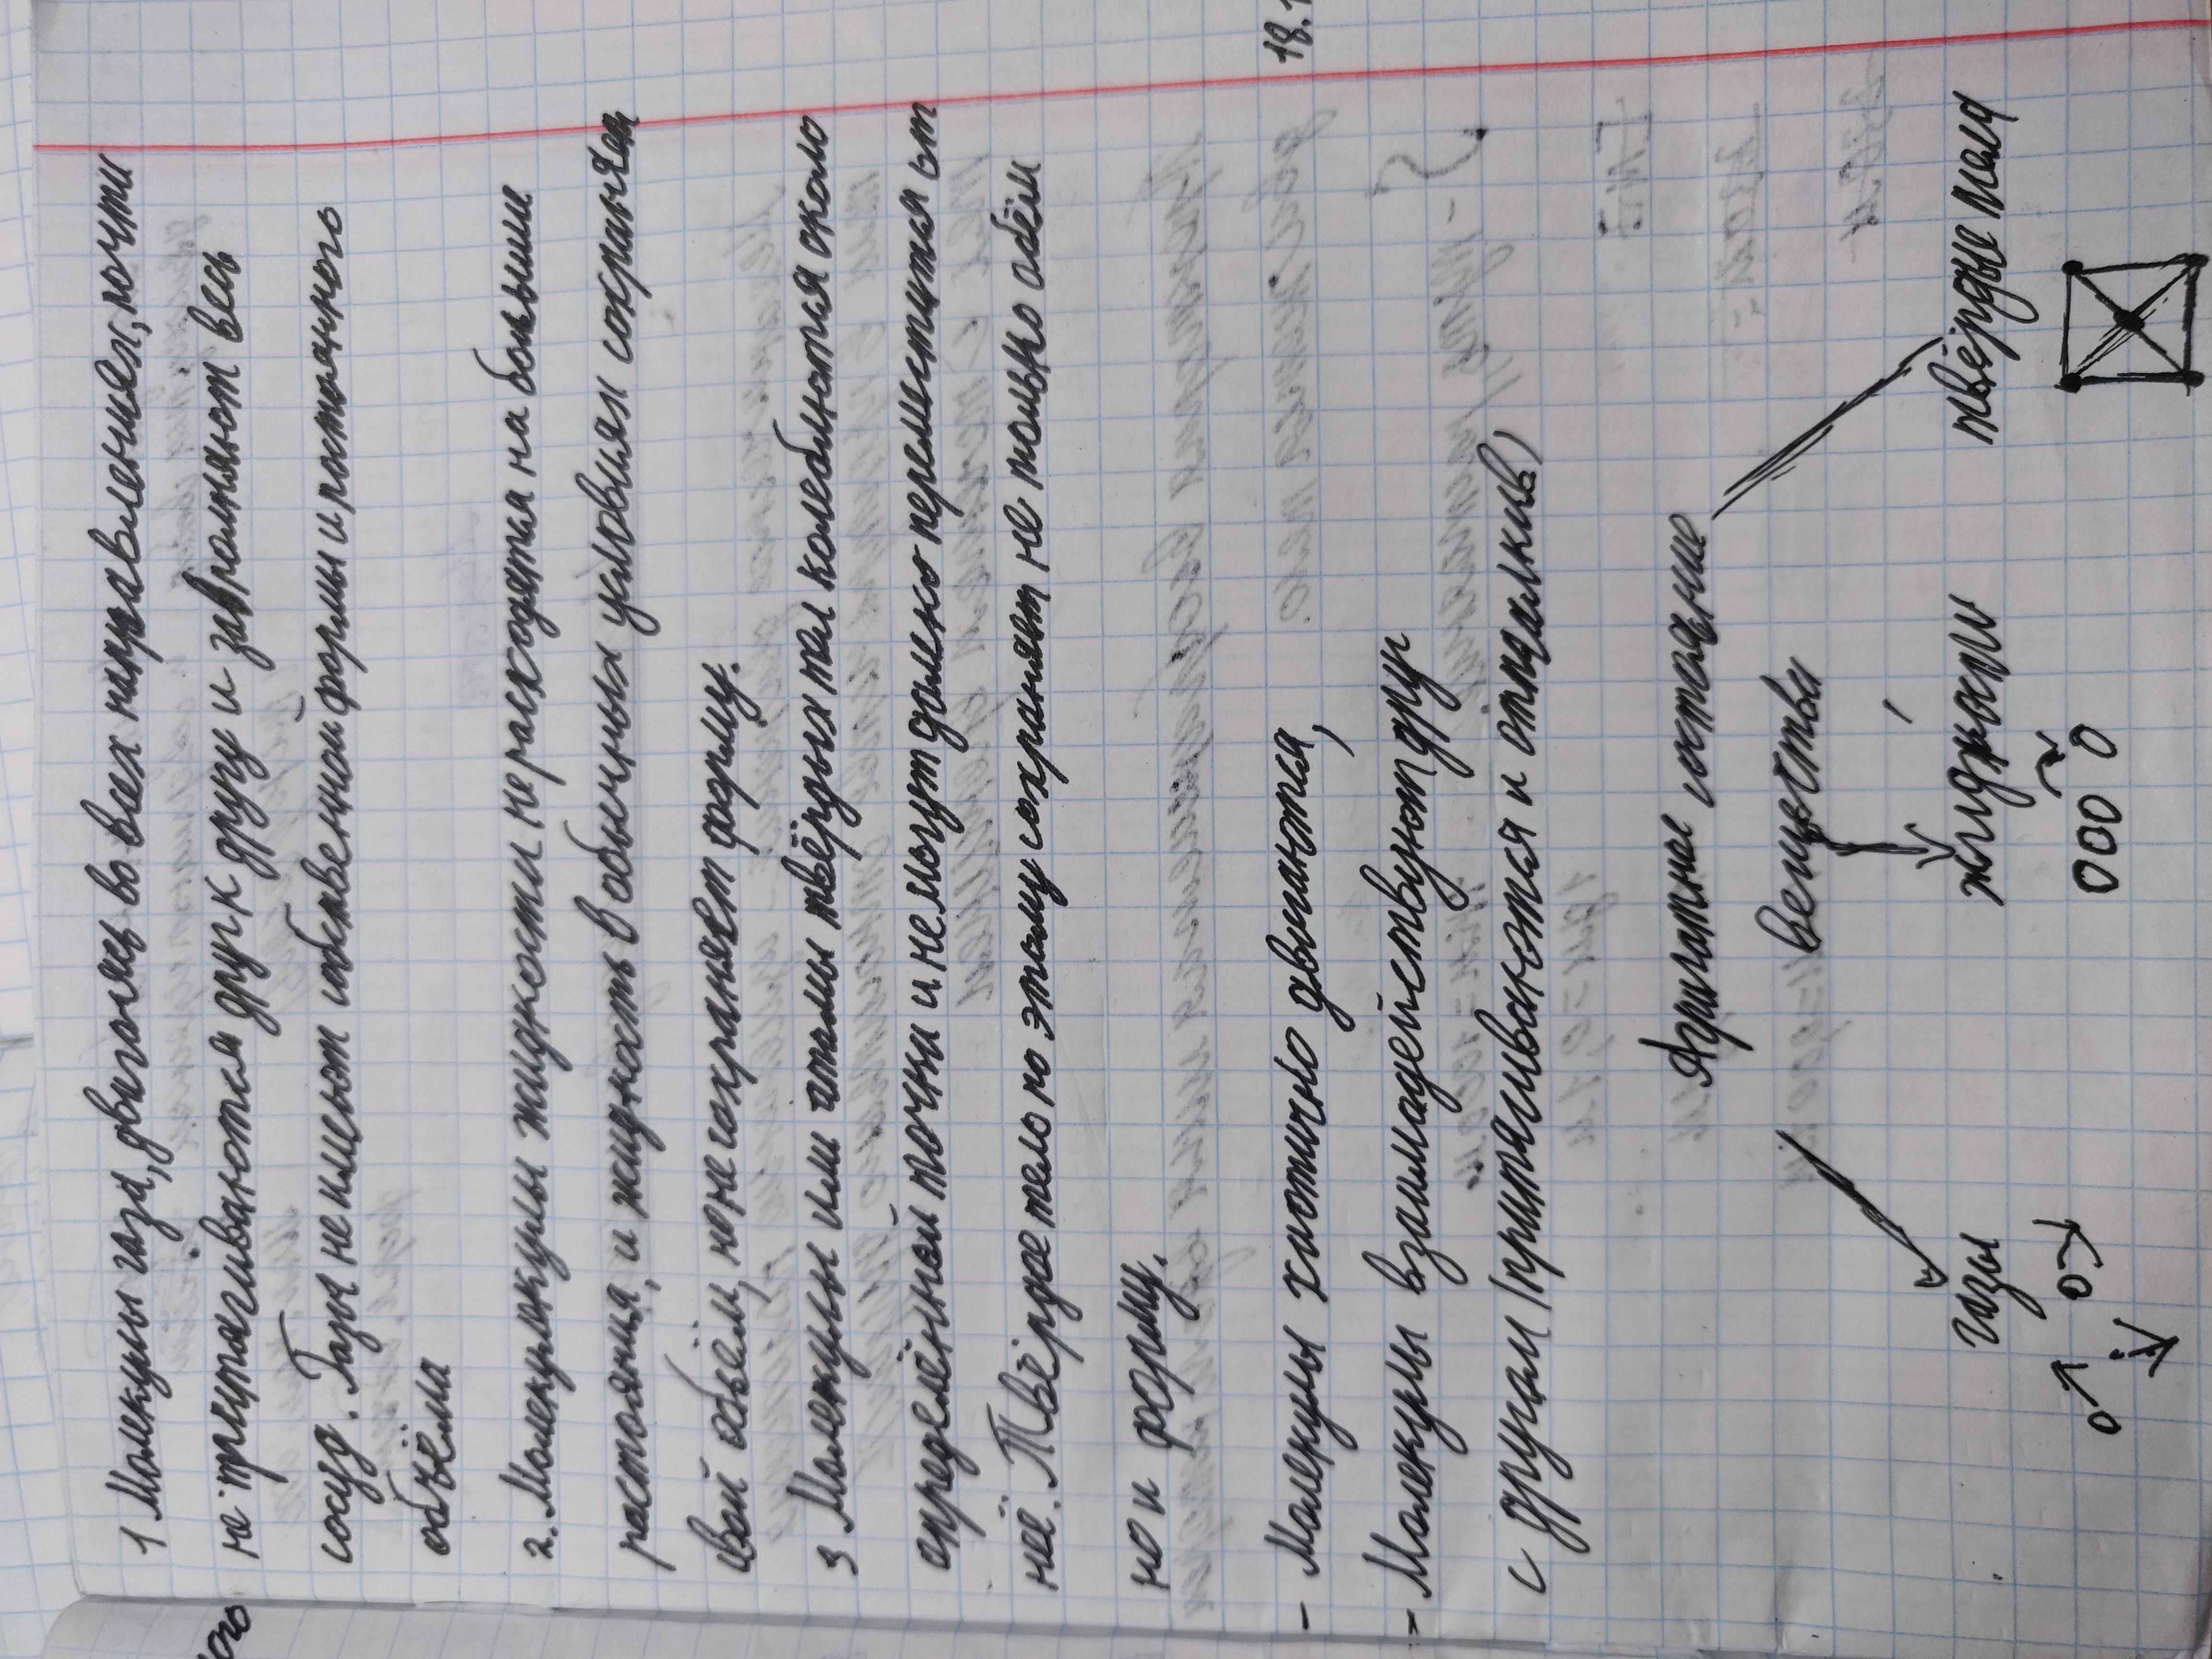 1 Молекулы газа, двигаясь во всех направлениях, почти
не притягиваются друг к другу и заполняют весь
сосуд. Газы не имеют собственной формы и постоянного
объёма
2. Молекулы жидкости не расходятся на большие
растояния, и жидкость в обычных условиях сохраняет
свой объём, но не сохраняет форму.
3 Молекулы или атомы твёрдых тел колеблются около
определённой точки и не могут далеко переместится от
неё. Твёрдое тело по этому сохраняет не только обём
но и форму.
- Молекулы хаотично двигаются,
- Молекулы взаимадействуют друг
с другам (притягиваются и отталкив)
Агригатные состаяние
вещества
газы жидкости твёрдые тела
18.1
ого